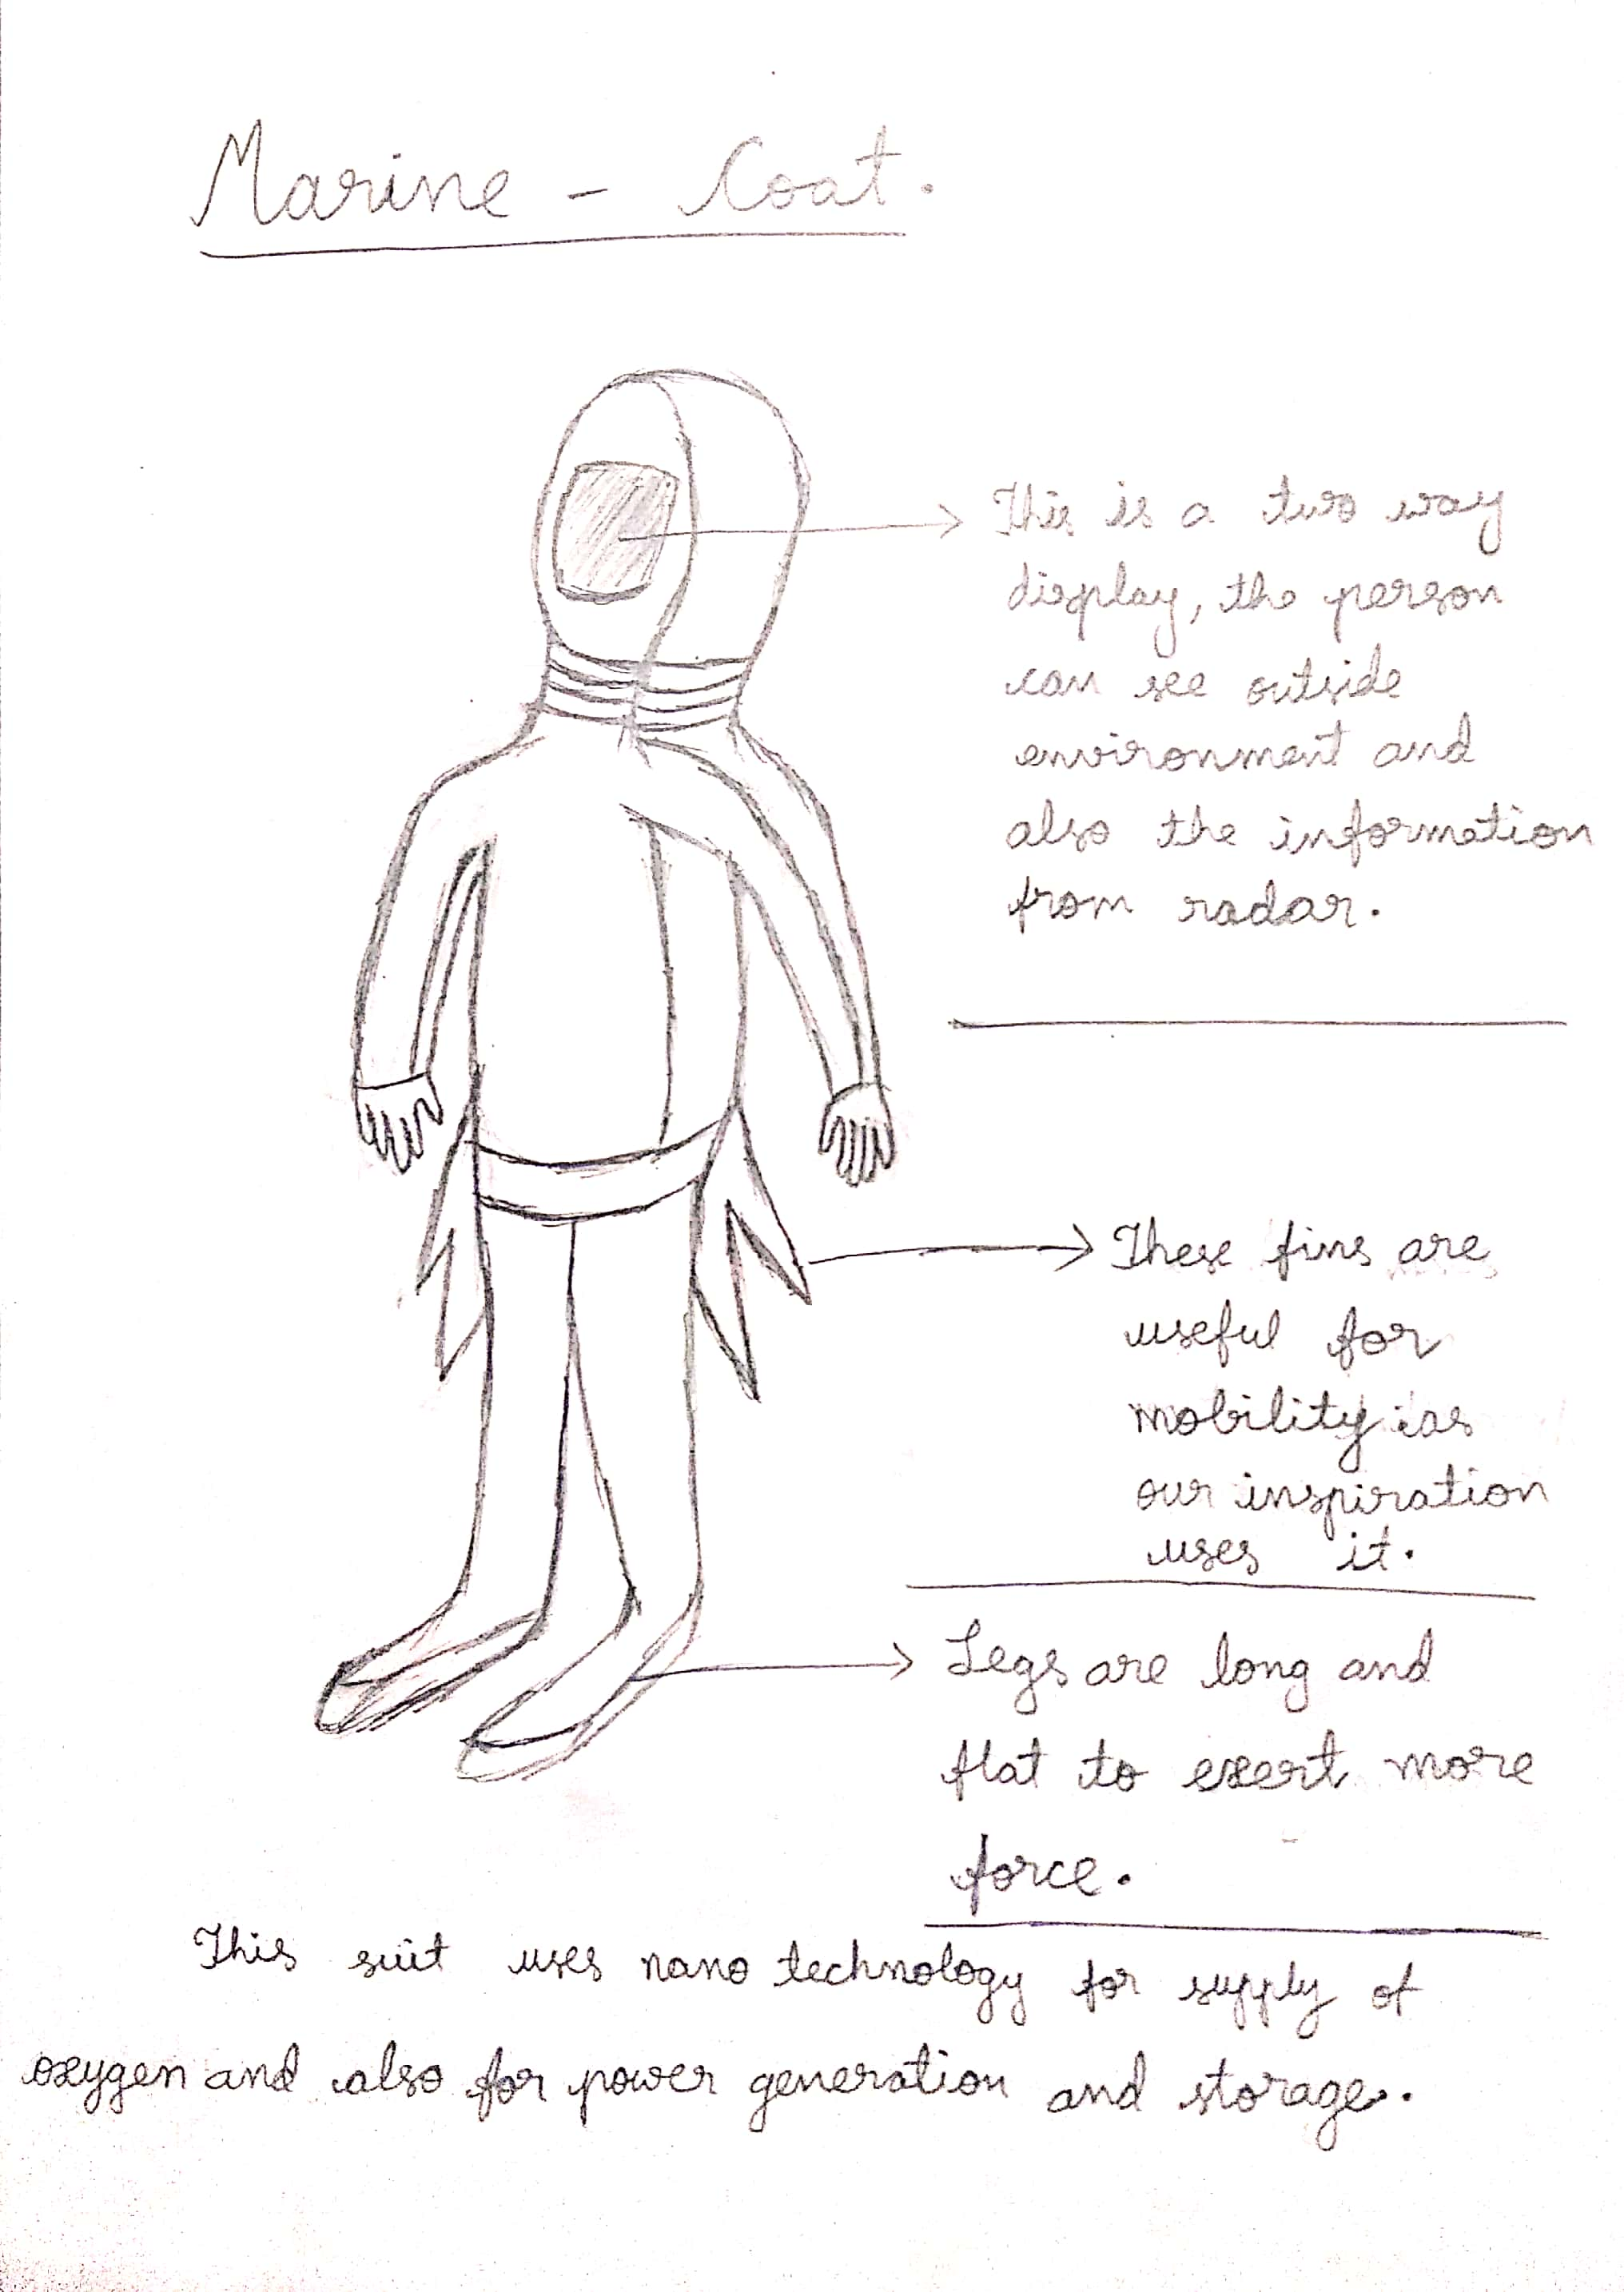 Marine - Coat.
This is a two way
display, the person
can see outside
environment and
also the information
from radar.
These fins are
useful for
mobility as
our inspiration
uses it.
Legs are long and
flat to exert more
force.
This suit uses nano technology for supply of
oxygen and also for power generation and storage.